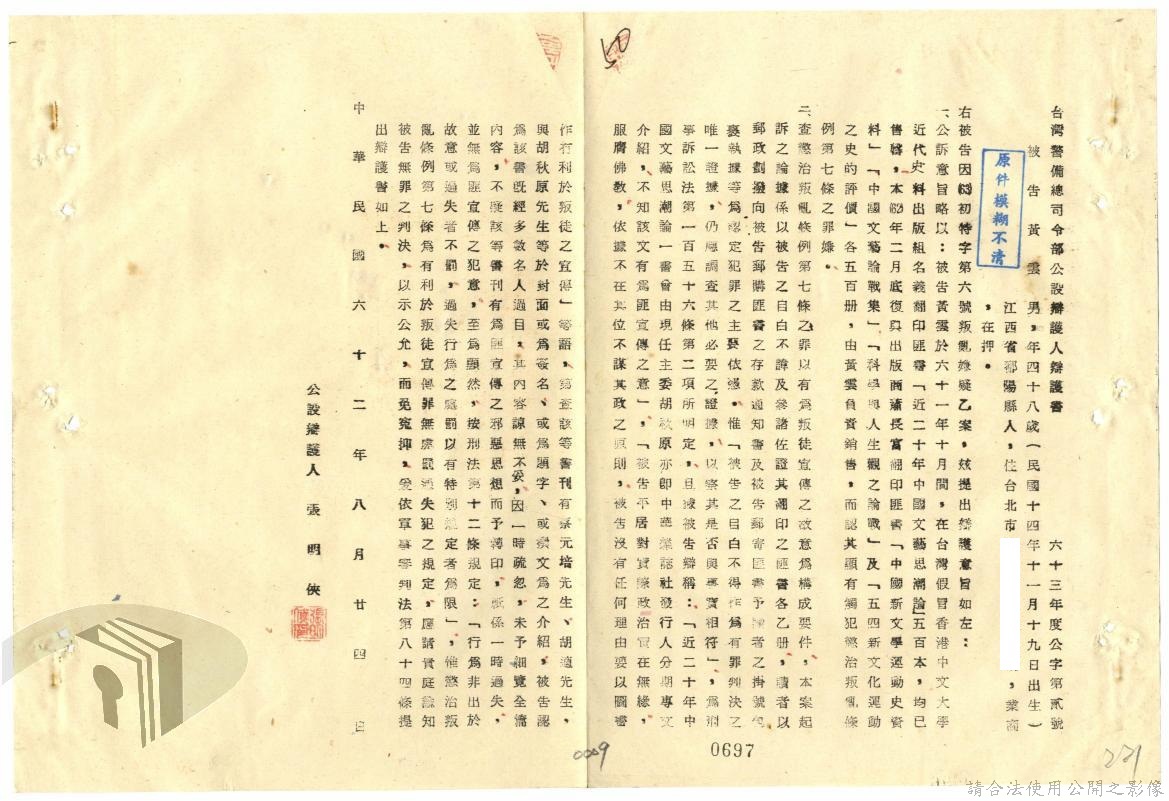 台灣警備總司令部公設辯護人辯護書
六十三年度公字第貳號
被告黃雲 男,年四十八歲(民國十四年十一月十九日出生)
江西省鄱陽縣人,住台北市 ,業商
,在押。
原件模糊不清
右被告因63初特字第六號叛亂嫌疑乙案,玆提出辯護意旨如左:
一、公訴意旨略以:被告黃雲於六十一年十月間,在台灣假冒香港中文大學
近代史料出版組名義翻印匪書「近二十年中國文藝思潮論」五百本,均已
售罄,本62年二月底復與出版商蕭長富翻印匪書「中國新文學運動史資
料」「中國文藝論戰集」「科學與人生觀之論戰」及「五四新文化運動
之史的評價」各五百册,由黃雲負責銷售,而認其顯有觸犯懲治叛亂條
例第七條之罪嫌。
二、查懲治叛亂條例第七條之罪以有為叛徒宣傳之故意為構成要件,本案起
訴之論據係以被告之自白不諱及參諸佐證其翻印之匪書各乙册,讀者以
郵政劃撥向被告郵購匪書之存款通知書及被告郵寄匪書予讀者之掛號包
裹執據等為認定犯罪之主要依據。惟「被告之自白不得作為有罪判決之
唯一證據,仍應調查其他必要之證據,以察其是否與事實相符」,為刑
事訴訟法第一百五十六條第二項所明定,且據被告辯稱:「近二十年中
國文藝思潮論一書曾由現任主委胡秋原亦即中華雜誌社發行人分期專文
介紹,不知該文有為匪宣傳之意」,「被告平居對實際政治實在無緣,
服膺佛教,依據不在其位不謀其政之原則,被告沒有任何理由要以圖書
作有利於叛徒之宣傳」等語,第查該等書刊有蔡元培先生、胡適先生,
與胡秋原先生等於封面或為簽名、或為題字、或撰文為之介紹,被告認
為該書既經多數名人過目,其內容諒無不妥,因一時疏忽,未予細覽全部
內容,不疑該等書刊有為匪宣傳之邪惡思想而予轉印,祇係一時過失,
並無為匪宣傳之犯意,至為顯然,按刑法第十二條規定:「行為非出於
故意或過失者不罰,過失行為之處罰以有特別規定者為限」,惟懲治叛
亂條例第七條為有利於叛徒宣傳罪無處罰過失犯之規定,應請貴庭諭知
被告無罪之判決,以示公允,而免冤抑,爰依軍事審判法第八十四條提
出辯護書如上。
中華民國六十二年八月廿四日
公設辯護人 張明俠
0009
0697
221
請合法使用公開之影像